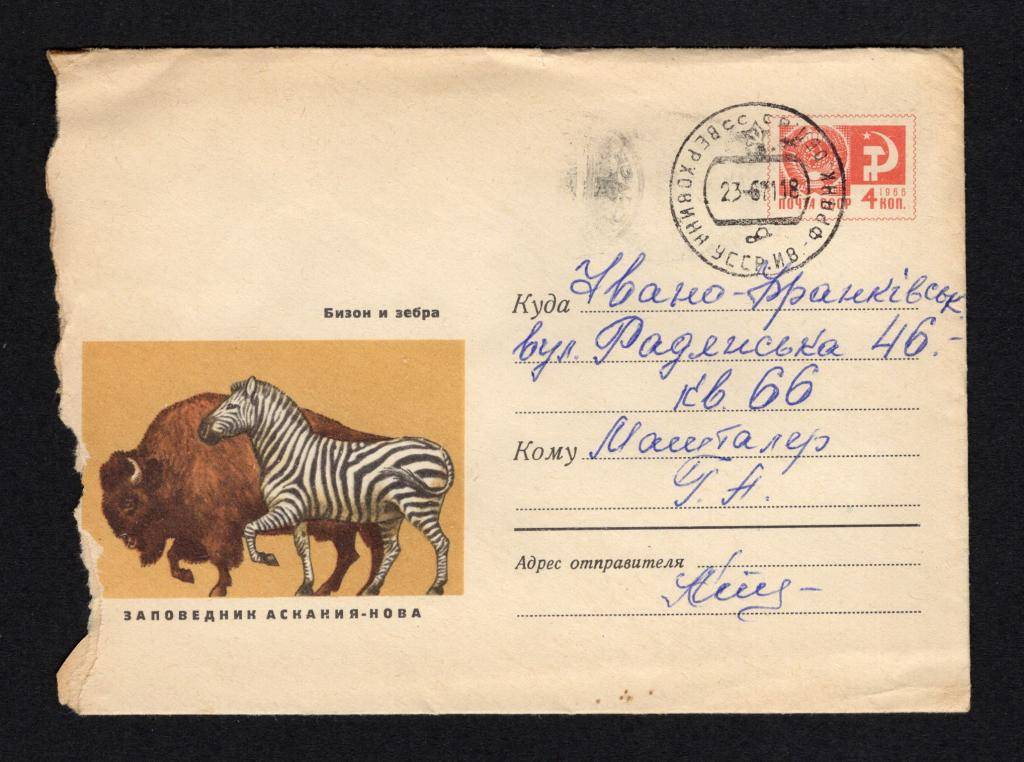 23-6 71 18
ПОЧТА СССР
1966
4 КОП.
Куда Івано-Франківськ
вул. Радянська 46.-
кв. 66
Бизон и зебра
Кому Машталер
Г. А.
Адрес отправителя
ЗАПОВЕДНИК АСКАНИЯ-НОВА